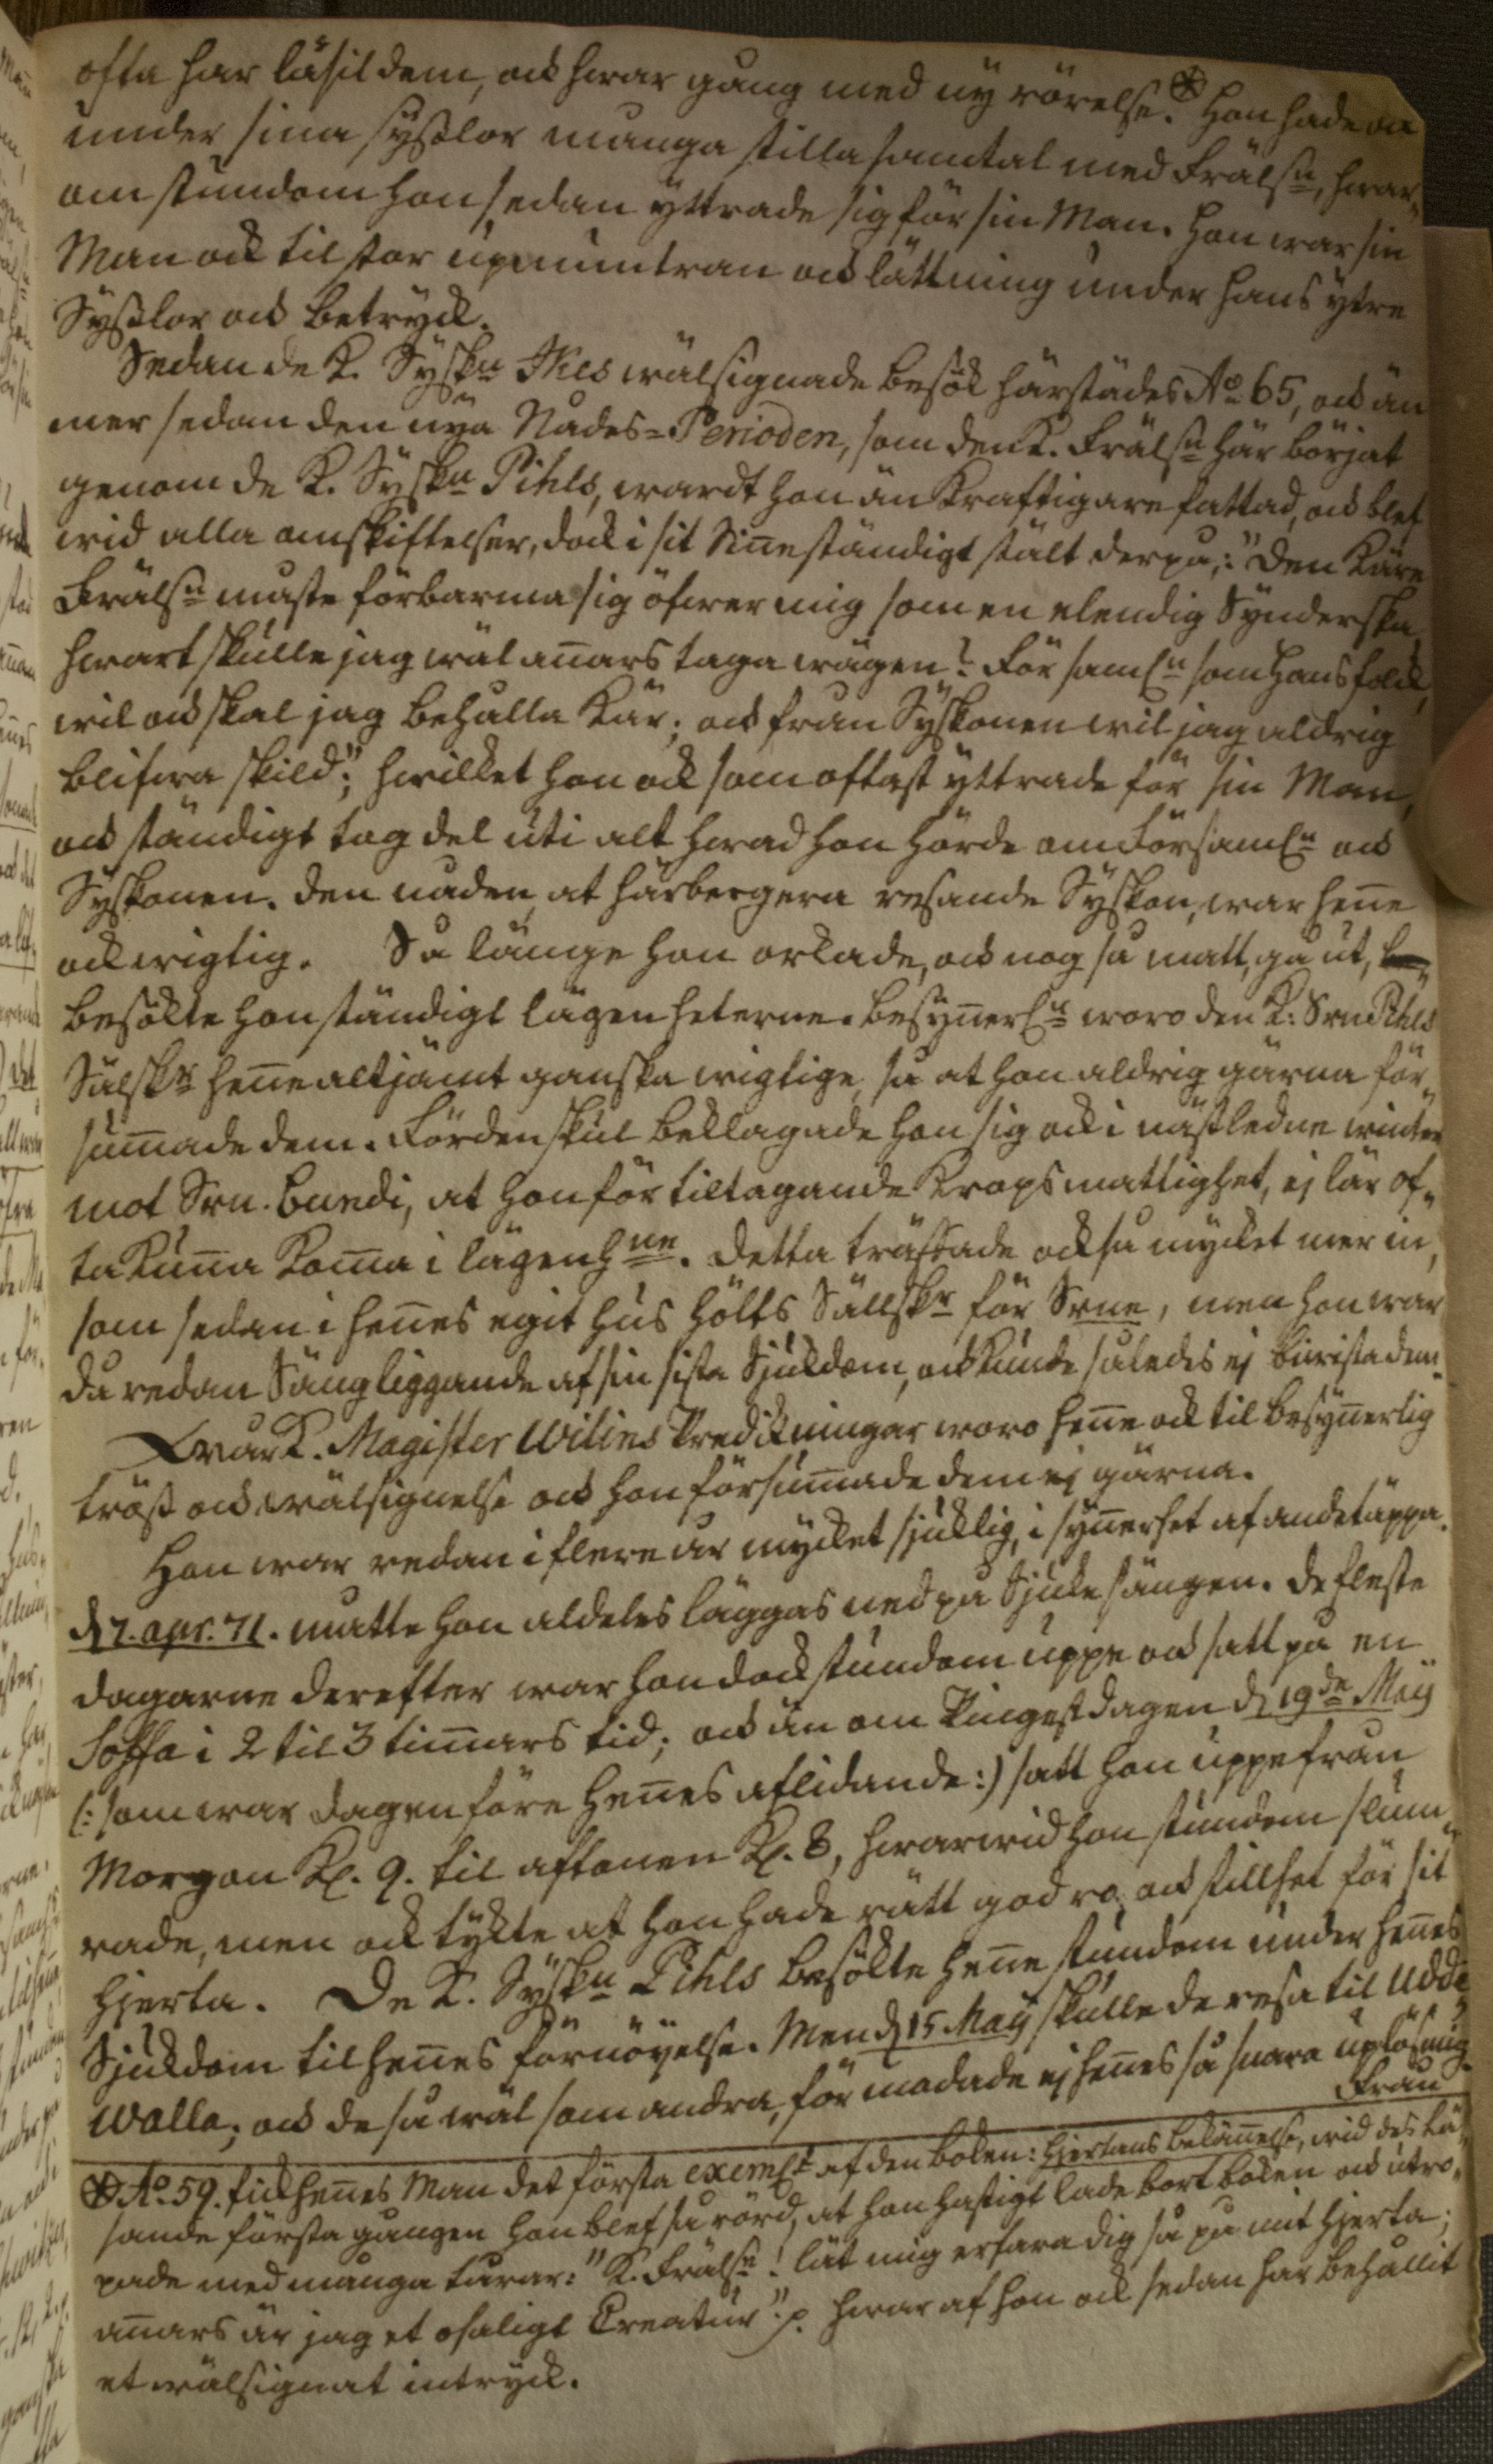 ofta har läsit dem, och hvar gång med ny rörelse.⊗ Hon hade ock
under sina sysslor många stilla samtal med Frälsn, hvar„
om stundom hon sedan yttrade sig för sin Man. Hon war sin
Man ock til stor upmuntran ock lättning under hans ytre
Sysslor ock betryck.
Sedan de K. Syskn Ikes wälsignade besök härstädes Ao 65, ock än
mer sedan den nya Nådes=Perioden, som den K. Frälsn här börjat
genom de K. Syskn Pihls, wardt hon än kraftigare fattad, ock blef
wid alla omskiftelser, dock i sit Sinne ständigt stält derpå: "Den Käre
Frälsn måste förbarma sig öfwer mig som en elendig Synderska,
hwart skulle jag wäl annars taga wägen? Församln som Hans folck,
wil ock skal jag behålla kär; ock från Syskonen wil jag aldrig
blifwa skild;" hwilket hon ock som oftast yttrade för sin Man,
ock ständigt tog del uti alt hwad hon hörde om Församln ock
Syskonen. Den nåden at härbergera resande Syskon, war henne
ock wigtig. Så länge hon orkade, ock nog så matt, gå ut,
besökte hon ständigt lägenheterne. Besynnerln woro den K: Srn Pihls
Sälskr henne altjämt ganska wigtige, så at hon aldrig gärna för„
summade dem. Fördenskul beklagade hon sig ock i nästledne winter
mot Srn. Bundi, at hon för tiltagande kropsmattighet, ej lär of„
ta kunna komma i lägenhne. Detta träffade ock så mycket mer in,
som sedan i hennes egit hus hölts Sällskr för Srne, men hon war
då redan Sängliggande af sin sista Sjukdom, ock kunde således ej biwista dem.
Wår K. Magister Wilins Predikningar woro henne ock til besynnerlig
tröst ock wälsignelse ock hon försummade dem ej gärna.
Hon war redan i flere år mycket sjuklig, i synnerhet af andetäppa.
d. 7. apr. 71. måtte hon aldeles läggas ned på Sjukesängen. De fleste
dagarne derefter war hon dock stundom uppe ock satt på en
Soffa i 2 til 3 timmars tid; ock än om Pingestdagen d. 19de Maij
(: som war dagen före hennes aflidande :) satt hon uppe från
Morgon Kl. 9. til aftonen Kl. 8, hwarwid hon stundom slum„
rade, men ock tykte at hon hade rätt god ro, ock stillhet för sit
Hjerta. De K. Syskn Pihls besökte henne stundom under hennes
Sjukdom til hennes förnöyelse. Men d. 15 Maij skulle de resa til Udde
walla; ock de så wäl som andra, förmodade ej hennes så snara uplösning.
Från
⊗ Ao. 59. fick hennes Man det första exemplt af den boken: Hjertans bekännelse, wid des lä„
sande första gången hon blef så rörd, at hon hastigt lade bort boken ock utro„
pade med många tårar: "K. Frälsn! lät mig erfara dig så på mit Hjerta;
annars är jag et osaligt Creatur" p. hwaraf hon ock sedan har behållit
et wälsignat intryck.